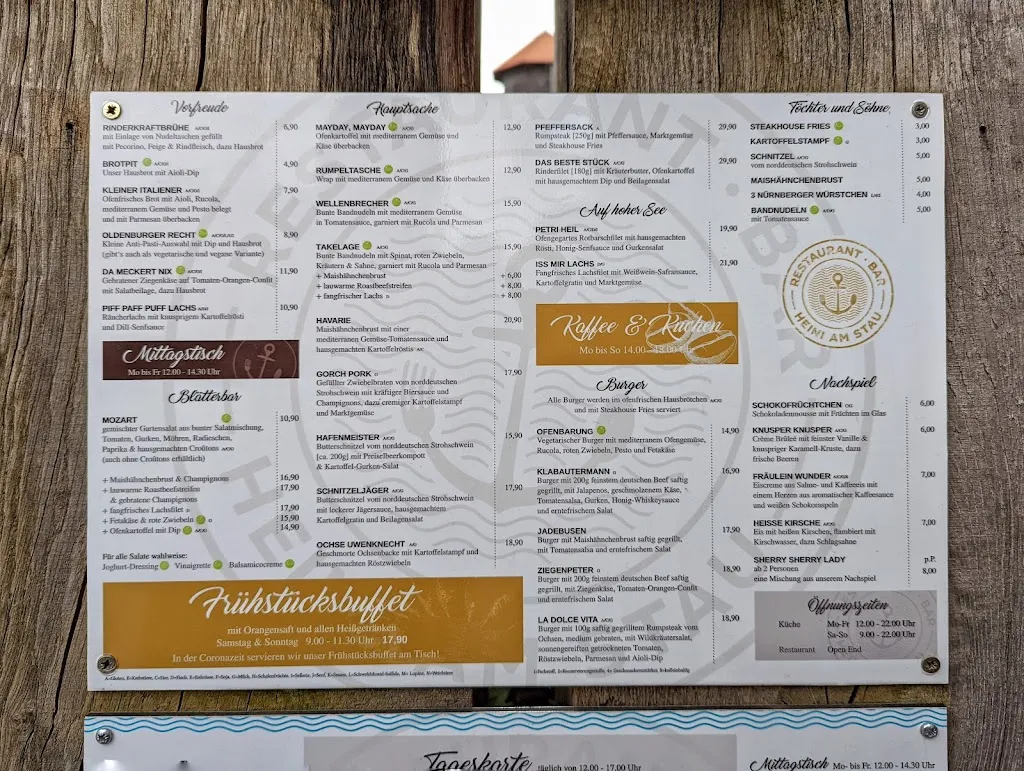 Vorfreude
RINDERKRAFTBRÜHE 6,90
mit Einlage von Nudeltaschen gefüllt
mit Pecorino, Feige & Rindfleisch, dazu Hausbrot
BROTPIT 4,90
Unser Hausbrot mit Aioli-Dip
KLEINER ITALIENER 7,90
Ofenfrisches Brot mit Aioli, Rucola,
mediterranem Gemüse und Pesto belegt
und mit Parmesan überbacken
OLDENBURGER RECHT 8,90
Kleine Anti-Pasti-Auswahl mit Dip und Hausbrot
(gibt's auch als vegetarische und vegane Variante)
DA MECKERT NIX 11,90
Gebratener Ziegenkäse auf Tomaten-Orangen-Confit
mit Salatbeilage, dazu Hausbrot
PIFF PAFF PUFF LACHS 10,90
Räucherlachs mit knusprigem Kartoffelrösti
und Dill-Senfsauce
Mittagstisch
Mo bis Fr 12.00 - 14.30 Uhr
Blätterbar
MOZART 10,90
gemischter Gartensalat aus bunter Salatmischung,
Tomaten, Gurken, Möhren, Radieschen,
Paprika & hausgemachten Croûtons
(auch ohne Croûtons erhältlich)
+ Maishähnchenbrust & Champignons 16,90
+ lauwarme Roastbeefstreifen 17,90
& gebratene Champignons
+ fangfrisches Lachsfilet 17,90
+ Fetakäse & rote Zwiebeln 15,90
+ Ofenkartoffel mit Dip 14,90
Für alle Salate wahlweise:
Joghurt-Dressing Vinaigrette Balsamicocreme
Hauptsache
MAYDAY, MAYDAY 12,90
Ofenkartoffel mit mediterranem Gemüse und
Käse überbacken
RUMPELTASCHE 12,90
Wrap mit mediterranem Gemüse und Käse überbacken
WELLENBRECHER 15,90
Bunte Bandnudeln mit mediterranem Gemüse
in Tomatensauce, garniert mit Rucola und Parmesan
TAKELAGE 15,90
Bunte Bandnudeln mit Spinat, roten Zwiebeln,
Kräutern & Sahne, garniert mit Rucola und Parmesan
+ Maishähnchenbrust + 6,00
+ lauwarme Roastbeefstreifen + 8,00
+ fangfrischer Lachs + 8,00
HAVARIE 20,90
Maishähnchenbrust mit einer
mediterranen Gemüse-Tomatensauce und
hausgemachten Kartoffelröstis
GORCH PORK 17,90
Gefüllter Zwiebelbraten vom norddeutschen
Strohschwein mit kräftiger Biersauce und
Champignons, dazu cremiger Kartoffelstampf
und Marktgemüse
HAFENMEISTER 15,90
Butterschnitzel vom norddeutschen Strohschwein
[ca. 200g] mit Preiselbeerkompott
& Kartoffel-Gurken-Salat
SCHNITZELJÄGER 17,90
Butterschnitzel vom norddeutschen Strohschwein
mit leckerer Jägersauce, hausgemachtem
Kartoffelgratin und Beilagensalat
OCHSE UWENKNECHT 18,90
Geschmorte Ochsenbacke mit Kartoffelstampf und
hausgemachten Röstzwiebeln
Frühstücksbuffet
mit Orangensaft und allen Heißgetränken
Samstag & Sonntag 9.00 - 11.30 Uhr 17,90
In der Coronazeit servieren wir unser Frühstücksbuffet am Tisch!
PFEFFERSACK 29,90
Rumpsteak [250g] mit Pfeffersauce, Marktgemüse
und Steakhouse Fries
DAS BESTE STÜCK 29,90
Rinderfilet [180g] mit Kräuterbutter, Ofenkartoffel
mit hausgemachtem Dip und Beilagensalat
Auf hoher See
PETRI HEIL 19,90
Ofengegartes Rotbarschfilet mit hausgemachten
Rösti, Honig-Senfsauce und Gurkensalat
ISS MIR LACHS 21,90
Fangfrisches Lachsfilet mit Weißwein-Safransauce,
Kartoffelgratin und Marktgemüse
Kaffee & Kuchen
Mo bis So 14.00 - 18.00 Uhr
Burger
Alle Burger werden im ofenfrischen Hausbrötchen
und mit Steakhouse Fries serviert
OFENBARUNG 14,90
Vegetarischer Burger mit mediterranem Ofengemüse,
Rucola, roten Zwiebeln, Pesto und Fetakäse
KLABAUTERMANN 16,90
Burger mit 200g feinstem deutschen Beef saftig
gegrillt, mit Jalapenos, geschmolzenem Käse,
Tomatensalsa, Gurken, Honig-Whiskeysauce
und erntefrischem Salat
JADEBUSEN 17,90
Burger mit Maishähnchenbrust saftig gegrillt,
mit Tomatensalsa und erntefrischem Salat
ZIEGENPETER 18,90
Burger mit 200g feinstem deutschen Beef saftig
gegrillt, mit Ziegenkäse, Tomaten-Orangen-Confit
und erntefrischem Salat
LA DOLCE VITA 18,90
Burger mit 100g saftig gegrilltem Rumpsteak vom
Ochsen, medium gebraten, mit Wildkräutersalat,
sonnengereiften getrockneten Tomaten,
Röstzwiebeln, Parmesan und Aioli-Dip
Töchter und Söhne
STEAKHOUSE FRIES 3,00
KARTOFFELSTAMPF 3,00
SCHNITZEL 5,00
vom norddeutschen Strohschwein
MAISHÄHNCHENBRUST 5,00
3 NÜRNBERGER WÜRSTCHEN 4,00
BANDNUDELN 5,00
mit Tomatensauce
RESTAURANT · BAR
HEIMI AM STAU
Nachspiel
SCHOKOFRÜCHTCHEN 6,00
Schokoladenmousse mit Früchten im Glas
KNUSPER KNUSPER 6,00
Crème Brûleé mit feinster Vanille &
knuspriger Karamell-Kruste, dazu
frische Beeren
FRÄULEIN WUNDER 7,00
Eiscreme aus Sahne- und Kaffeeeis mit
einem Herzen aus aromatischer Kaffeesauce
und weißen Schokonspeln
HEISSE KIRSCHE 7,00
Eis mit heißen Kirschen, flambiert mit
Kirschwasser, dazu Schlagsahne
SHERRY SHERRY LADY p.P.
ab 2 Personen 8,00
eine Mischung aus unserem Nachspiel
Öffnungszeiten
Küche Mo-Fr 12.00 - 22.00 Uhr
Sa-So 9.00 - 22.00 Uhr
Restaurant Open End
Tageskarte täglich von 12.00 - 17.00 Uhr
Mittagstisch Mo- bis Fr. 12.00 - 14.30 Uhr